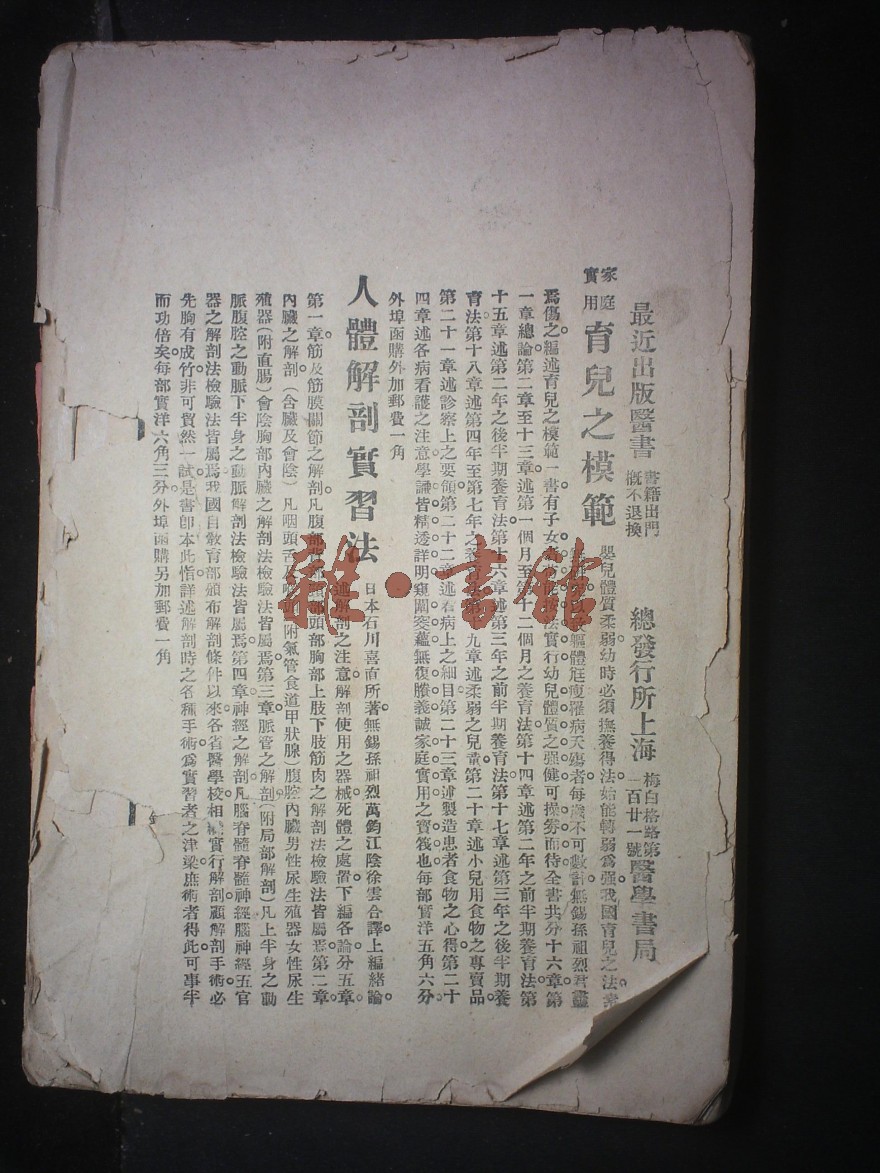 最近出版醫書 書籍出門概不退換 總發行所上海 梅白格路第一百廿一號 醫學書局
家庭實用 育兒之模範 嬰兒體質柔弱幼時必須撫養得法始能轉弱爲强我國育兒之法
軀體尫瘦羅病夭殤者每歲不可數計無錫孫祖烈君
爲傷之編述育兒之模範一書有子女者按法實行幼兒體質之强健可操券而待全書共分十六章第
一章總論第二章至十三章述第一個月至第十二個月之養育法第十四章述第二年之前半期養育法第
十五章述第二年之後半期養育法第十六章述第三年之前半期養育法第十七章述第三年之後半期養
育法第十八章述第四年至第七年之養育法第十九章述柔弱之兒童第二十章述小兒用食物之專賣品
第二十一章述診察上之要領第二十二章述看病上之細目第二十三章述製造患者食物之心得第二十
四章述各病看護之注意學識皆精透詳明窺闡奕蘊無復賸義誠家庭實用之寶筏也每部實洋五角六分
外埠函購外加郵費一角
人體解剖實習法 日本石川喜直所著無錫孫祖烈萬鈞江陰徐雲合譯上編緒論
述解剖之注意解剖使用之器械死體之處置下編各論分五章
第一章筋及筋膜關節之解剖凡腹部背部頸部頭部胸部上肢下肢筋肉之解剖法檢驗法皆屬焉第二章
內臟之解剖(含臟及會陰)凡咽頭舌及喉頭(附氣管食道甲狀腺)腹腔內臟男性尿生殖器女性尿生
殖器(附直腸)會陰胸部內臟之解剖法檢驗法皆屬焉第三章脈管之解剖(附局部解剖)凡上半身之動
脈腹腔之動脈下半身之動脈解剖法檢驗法皆屬焉第四章神經之解剖凡腦脊髓脊髓神經腦神經五官
器之解剖法檢驗法皆屬焉我國自敎育部頒布解剖條件以來各省醫學校相繼實行解剖顧解剖手術必
先胸有成竹非可貿然一試是書卽本此恉詳述解剖時之各種手術爲實習者之津梁庶術者得此可事半
而功倍矣每部實洋六角三分外埠函購另加郵費一角
雜·書館